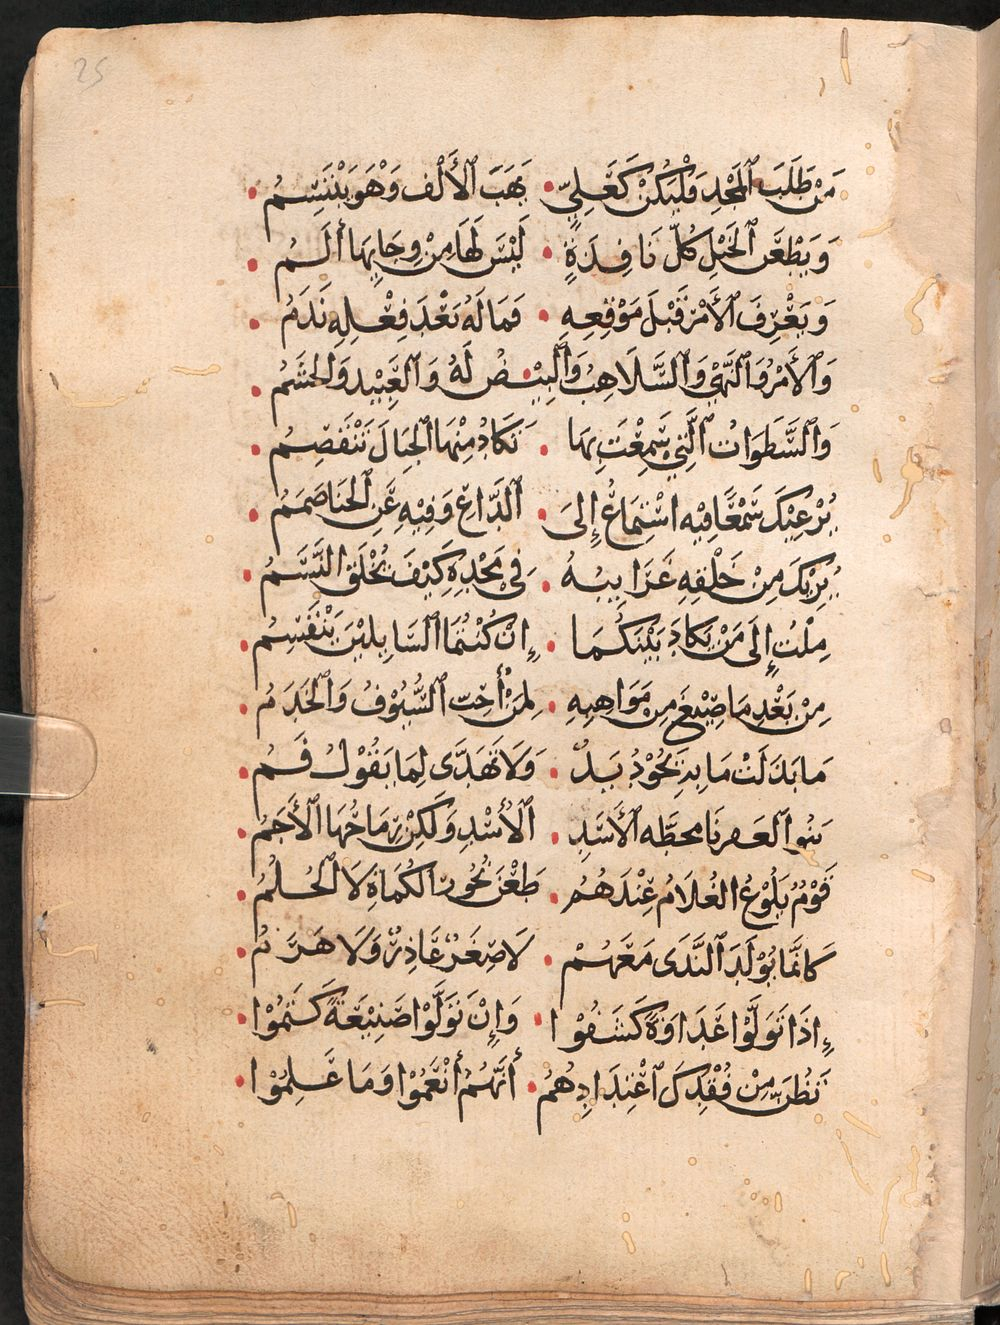 25
مَنْ طَلَبَ ٱلْمَجْدِ فَلْيَكُنْ كَعَلِيٍّ • يَهَبَ ٱلْأَلْفِ وَهْوَ يَبْتَسِمُ •
وَيَطْعَن ٱلْخَيْلِ كُلَّ نَافِذَةٍ • لَيْسَ لَهَا مِنْ وِجَايِهَا أَلَمُ •
وَيَعْرِفَ ٱلْأَمْرَ قَبْلَ مَوْقِعِهِ • فَمَا لَهُ بَعْدَ فِعْلِهِ نَدَمُ •
وَٱلْأَمْرُ وَٱلنَّهْيُ وَٱلسَّلَاهِبُ وَٱلْبِيْضُ لَهُ وَٱلْعَبِيْد وَالْحَشَمُ •
وَٱلسَّطَوَاتُ ٱلَّتِي سَمِعْتَ بِهَا • تَكَادُ مِنْهَا الْجِبَالَ تَنْقَصِمُ •
يُرْعِيْكَ سَمْعًا فِيْهِ اسْتِمَاعٌ إِلىَ • ٱلدَّاعِ وَفِيْهِ عَنِ ٱلْخَنَا صَمَمُ •
يُرِيْكَ مِنْ خَلْقِهِ غَرَايِبِهُ • فِي مَجْدِهِ كَيْفَ يُخْلَقُ النَّسَمُ •
مِلْتُ إِلَى مَنْ يَكَادَ بَيْنَكُمَا • إِنْ كُنْتُمَا ٱلسَّايِلَيْنِ يَنْقَسِمُ •
مِنْ بَعْدِ مَا صِيْغَ مِنْ مَوَاهِبِهِ • لِمَنْ أُحِبّ ٱلشُّنُوْفُ وَٱلْخَدَمُ •
مَا بَذَلَتْ مَا بِهِ يَجُوْدُ يَدٌ • وَلَا تَهَدَّى لِمَا يَقُوْلُ فَمُ •
بَنُو ٱلعفرنا محطه ٱلْأَسَدِ • ٱلْأُسْدِ وَلَكِنْ رِمَاحُهَا ٱلْأَجَمُ •
قَوْمٌ بُلُوْغُ الْغُلَامُ عِنْدَهُمُ • طَعْنَ نُحُوْرِ الْكُمَاةِ لَا ٱلْحُلُمُ •
كَانَّمَا يُوْلَدَ ٱلنَّدَى مَعَهُمْ • لَا صِغَرٌ عَاذِرٌ وَلَا هَرَمُ •
إِذَا تَوَلَّوْا عَدَاوَةً كَشَفُوْا • وَإِنْ تَوَلَّوْا صَنِيْعَةً كَتَمُوْا •
تَظُنّ مِنْ فُقْدِكَ ٱعْتِدَادِهُمُ • أَنَّهُمْ أَنْعَمُوْا وَمَا عَلِمُوْا •